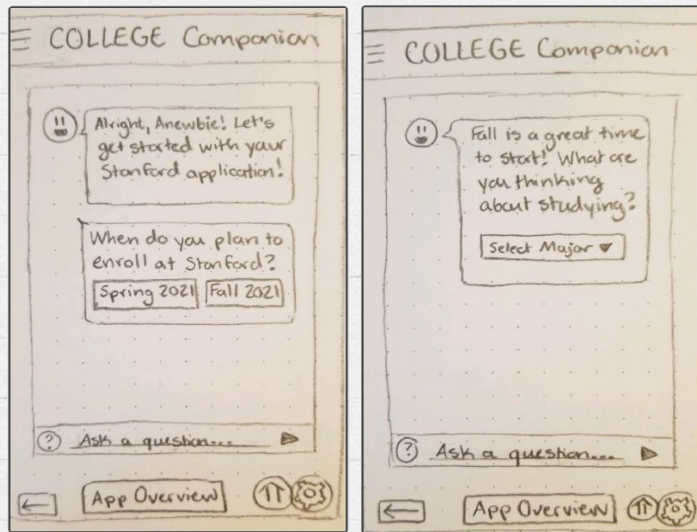 COLLEGE Companion
Alright, Anewbie! Let's
get started with your
Stanford application!
When do you plan to
enroll at Stanford?
Spring 2021 Fall 2021
? Ask a question...
App Overview
COLLEGE Companion
Fall is a great time
to start! What are
you thinking
about studying?
Select Major
? Ask a question...
App Overview